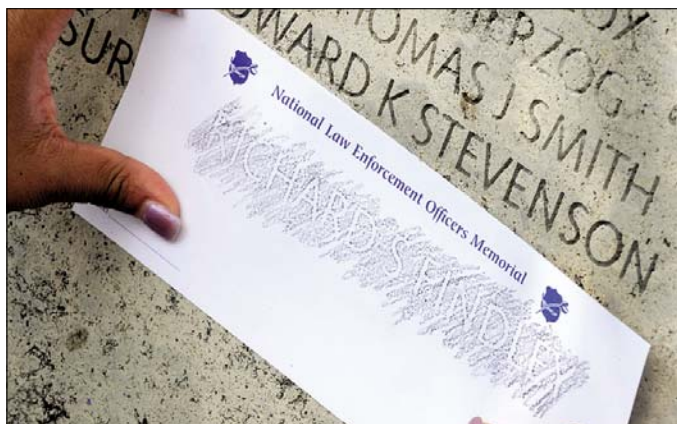 HERZOG
THOMAS J SMITH
HOWARD K STEVENSON
SUR
National Law Enforcement Officers Memorial
RICHARD S FINDLEY